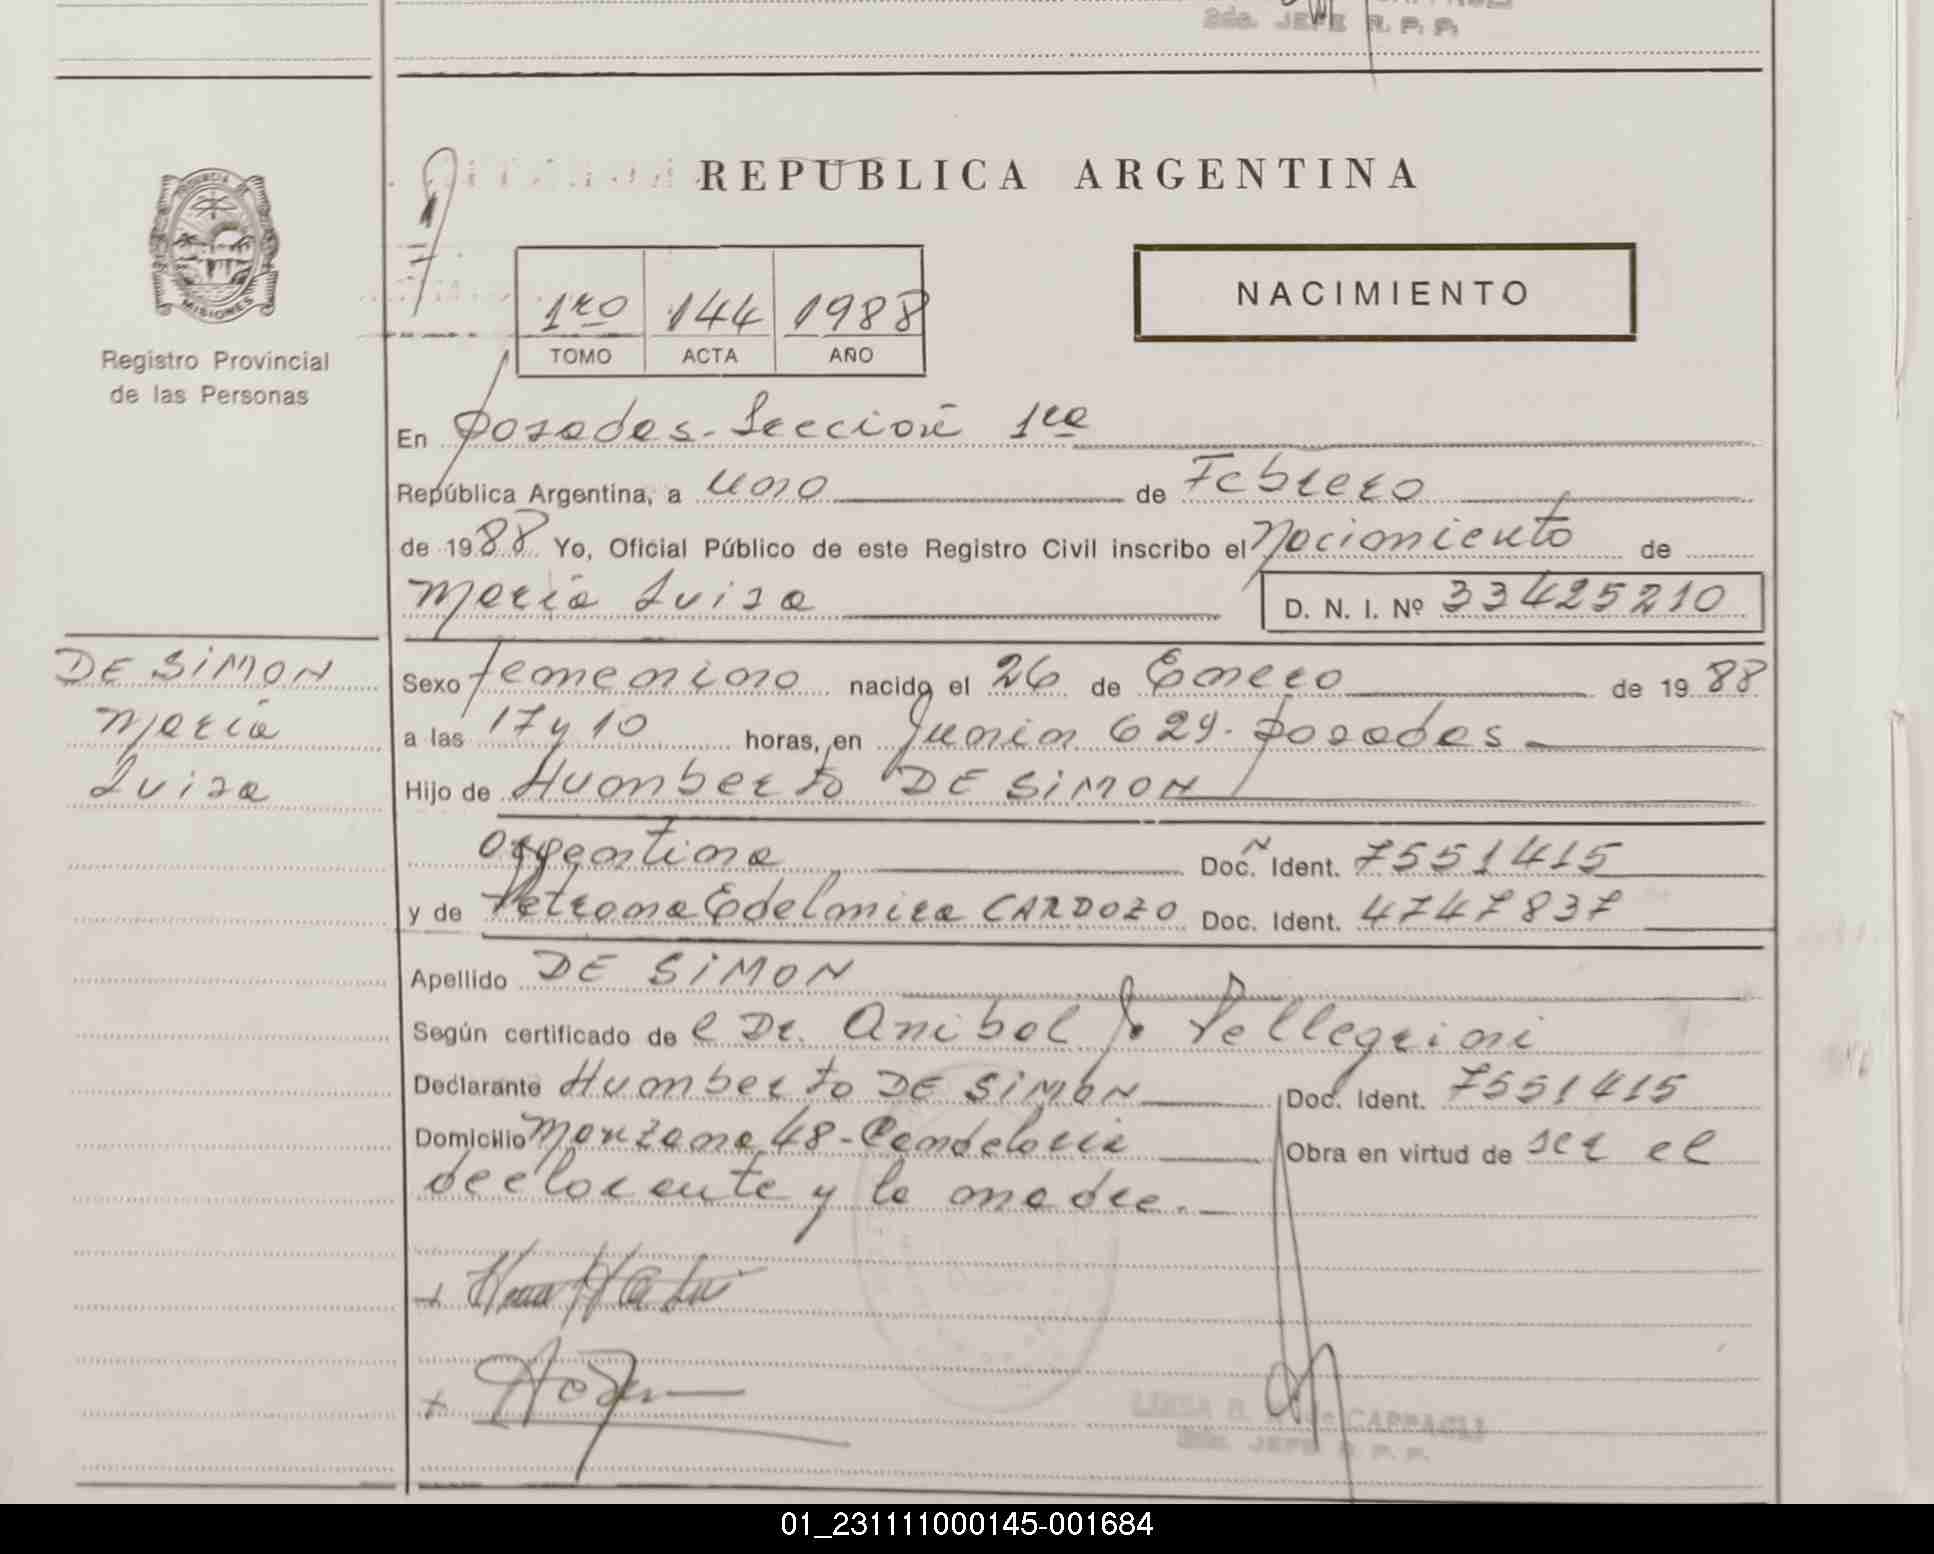 2do. JEFE R. P. P.
REPUBLICA ARGENTINA
PROVINCIA DE
MISIONES
Registro Provincial
de las Personas
1ro 144 1988
TOMO ACTA AÑO
NACIMIENTO
En Posadas - Sección 1ra
República Argentina, a uno de Febrero
de 1988 Yo, Oficial Público de este Registro Civil inscribo el Nacimiento de
María Luisa D. N. I. Nº 33425210
DE SIMON
María
Luisa
Sexo femenino nacido el 26 de Enero de 1988
a las 17 y 10 horas, en Junin 629 - Posadas
Hijo de Humberto DE SIMON
argentina Doc. Ident. 7551415
y de Petrona Edelmira CARDOZO Doc. Ident. 4747837
Apellido DE SIMON
Según certificado de el Dr. Anibal J. Pellegrini
Declarante Humberto DE SIMON Doc. Ident. 7551415
Domicilio Manzana 48 - Candelaria Obra en virtud de ser el
declarante y la madre.
LUISA B. de CAPPAGLI
2do. JEFE R. P. P.
01_231111000145-001684